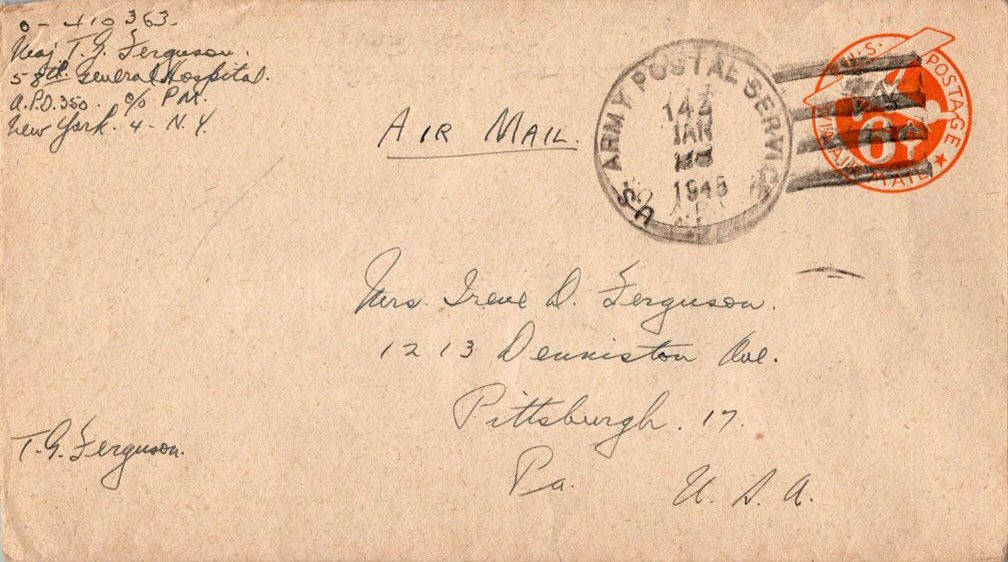 O-410363-
Maj T. G. Ferguson.
58th General Hospital.
A.P.O. 350. c/o P.M.
New York. 4 - N. Y.
AIR MAIL.
U.S. ARMY POSTAL SERVICE
JAN
1945
A.P.O.
U.S. POSTAGE
6¢
VIA AIR MAIL
Mrs. Irene D. Ferguson.
1213 Denniston Ave.
Pittsburgh. 17.
Pa. U. S. A.
T. G. Ferguson.